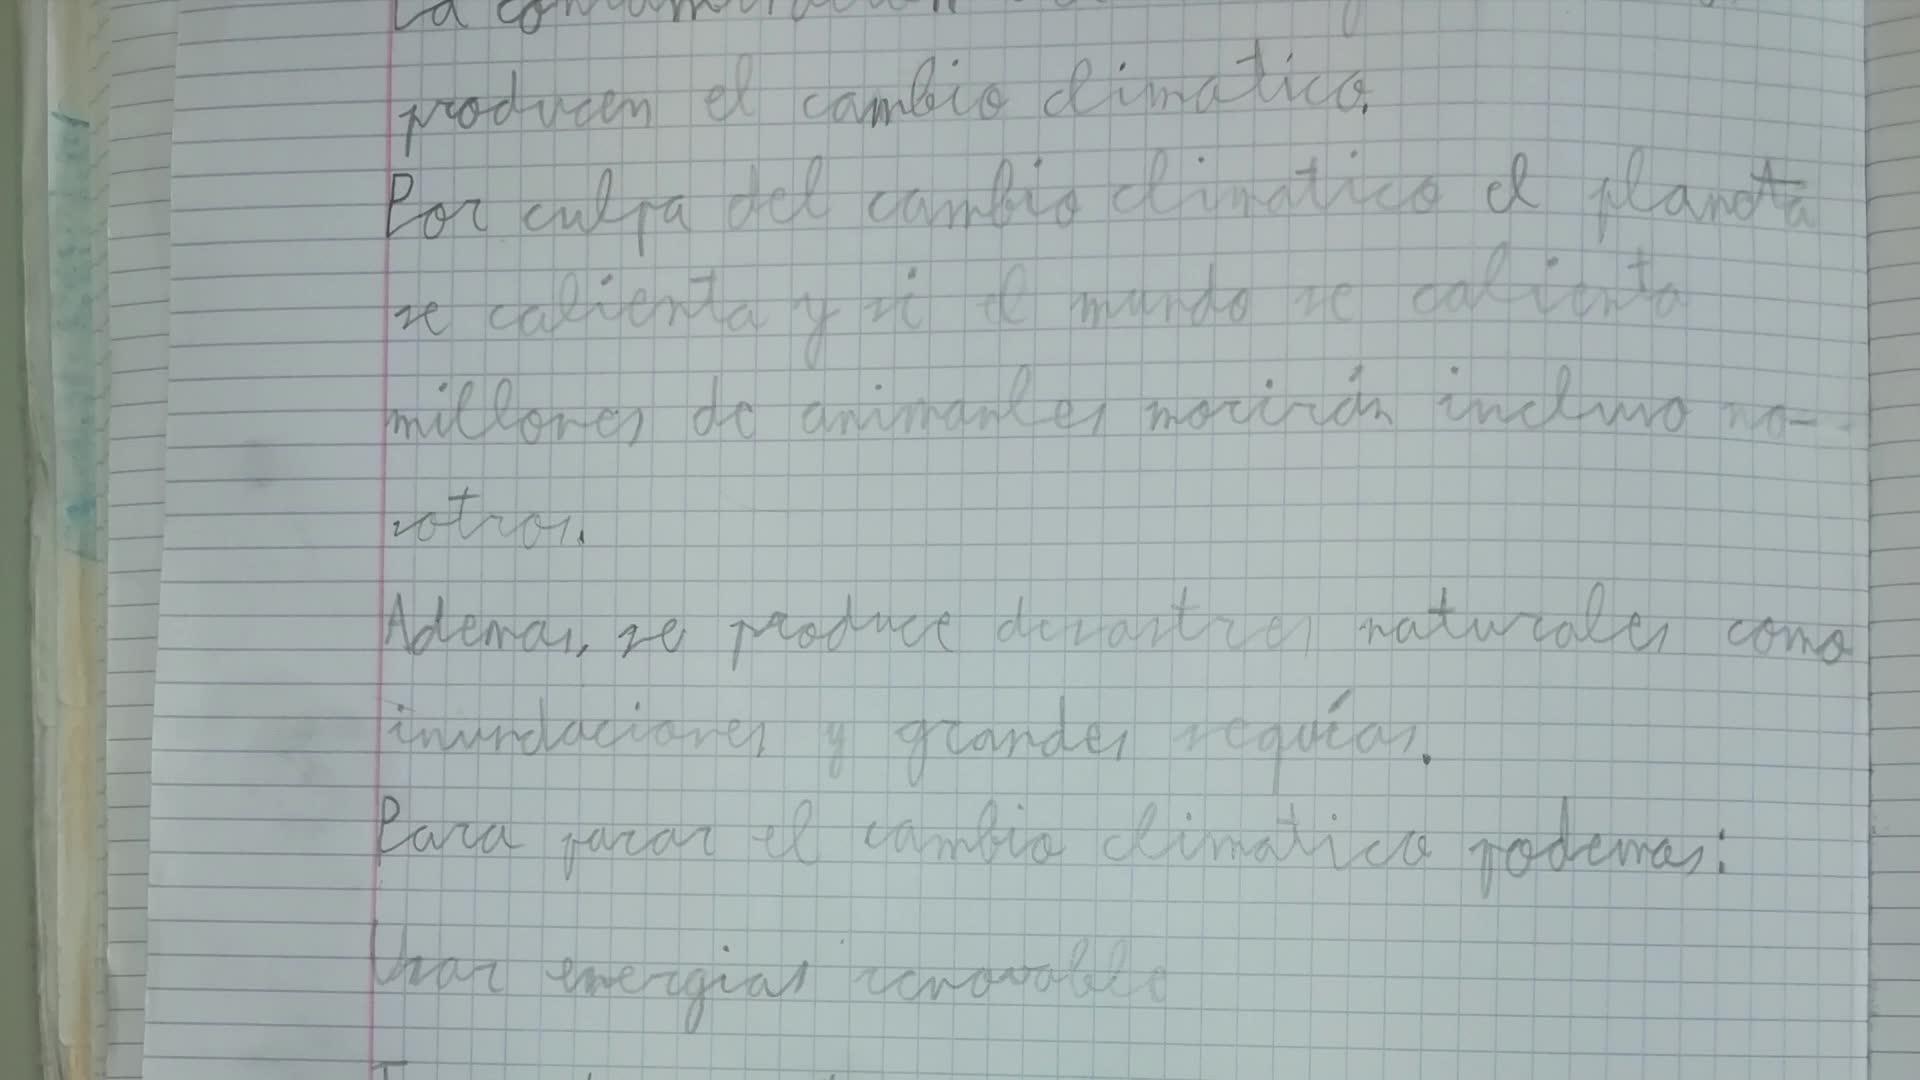 La contaminación
producen el cambio climatico.
Por culpa del cambio climatico el planeta
se calienta y si el mundo se calienta
millones de animanles morirán incluso no-
sotros.
Ademas, se produce desastres naturales como
inundaciones y grandes sequías.
Para parar el cambio climatico podemos:
Usar energias renovable